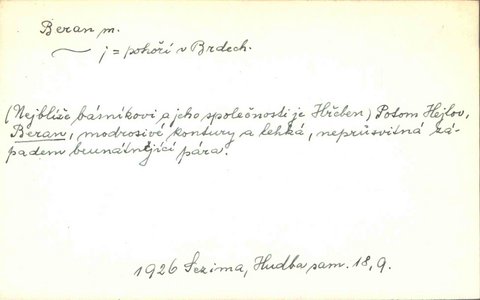 Beran m.
j = pohoří v Brdech.
(Nejblíže básníkovi a jeho společnosti je Hřeben) Potom Hejlov,
Beran, modrosivé kontury a lehká, neprůsvitná zá-
padem brunátnějící pára.
1926 Sezima, Hudba sam. 18, 9.